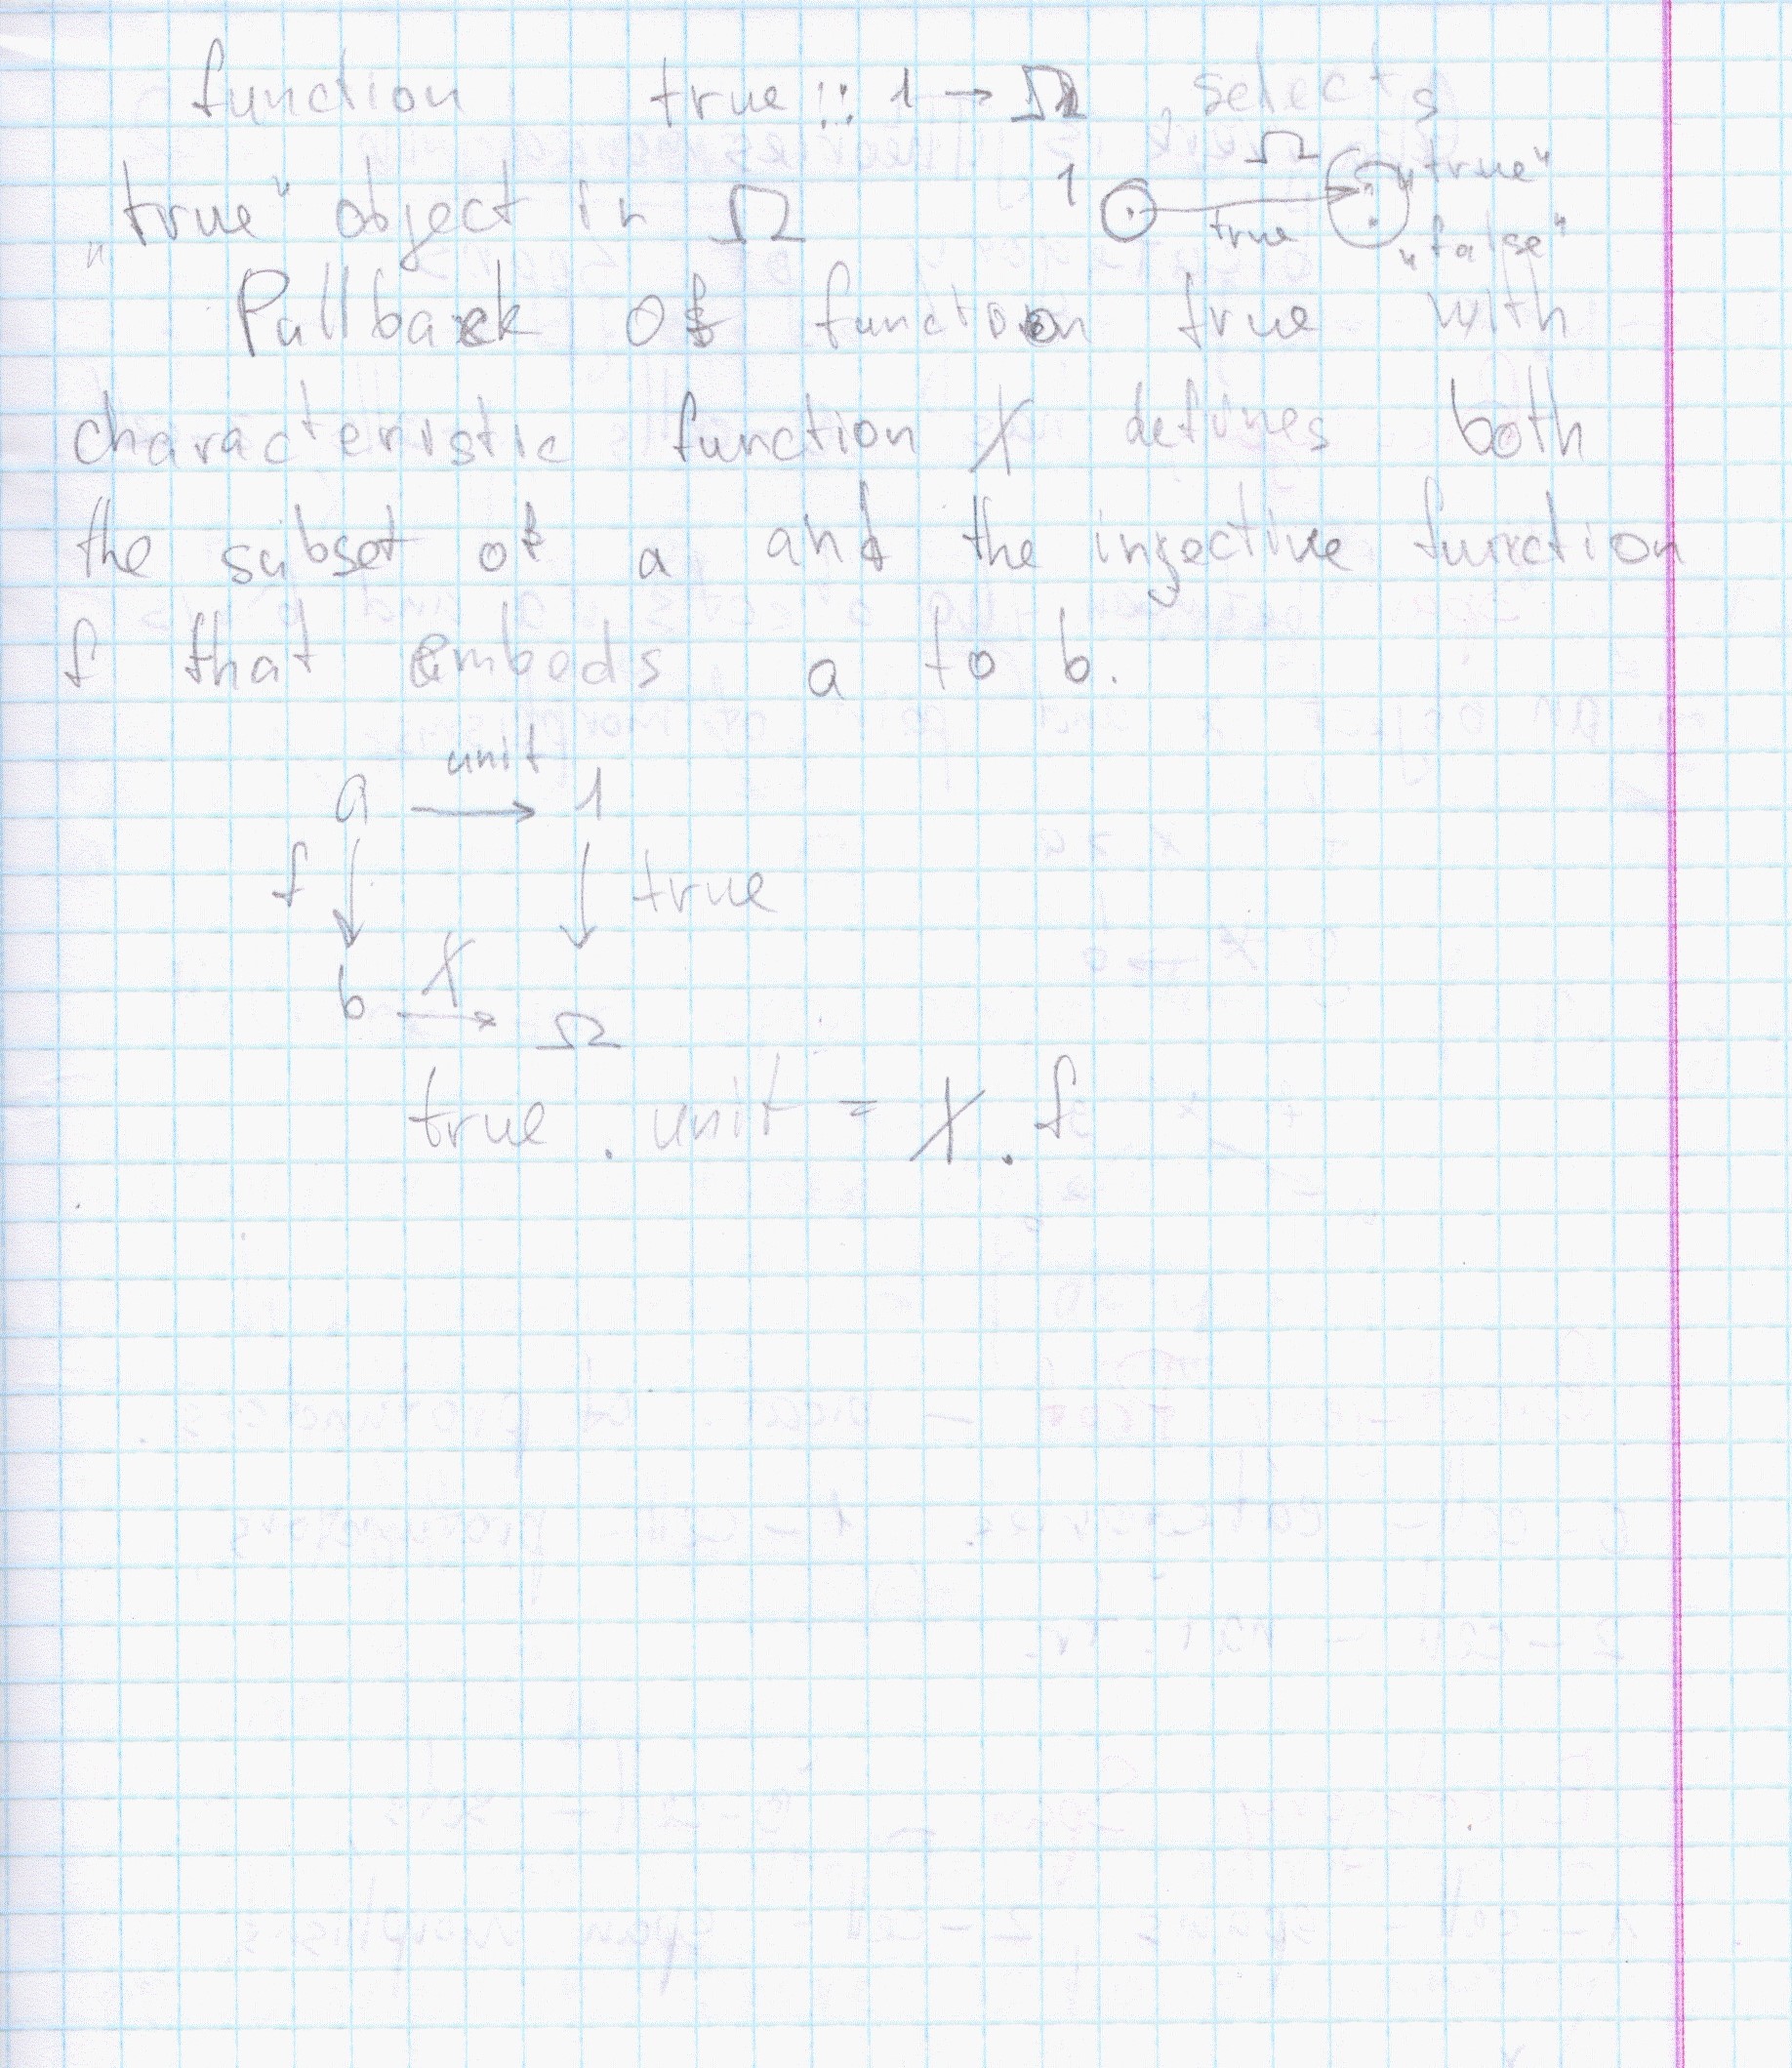 function true :: 1 → Ω selects
„true" object in Ω 1 true Ω „true" „false"
Pullback of function true with
characteristic function χ defines both
the subset of a and the injective function
f that embeds a to b.
a unit → 1
f ↓ ↓ true
b χ → Ω
true . unit = χ . f